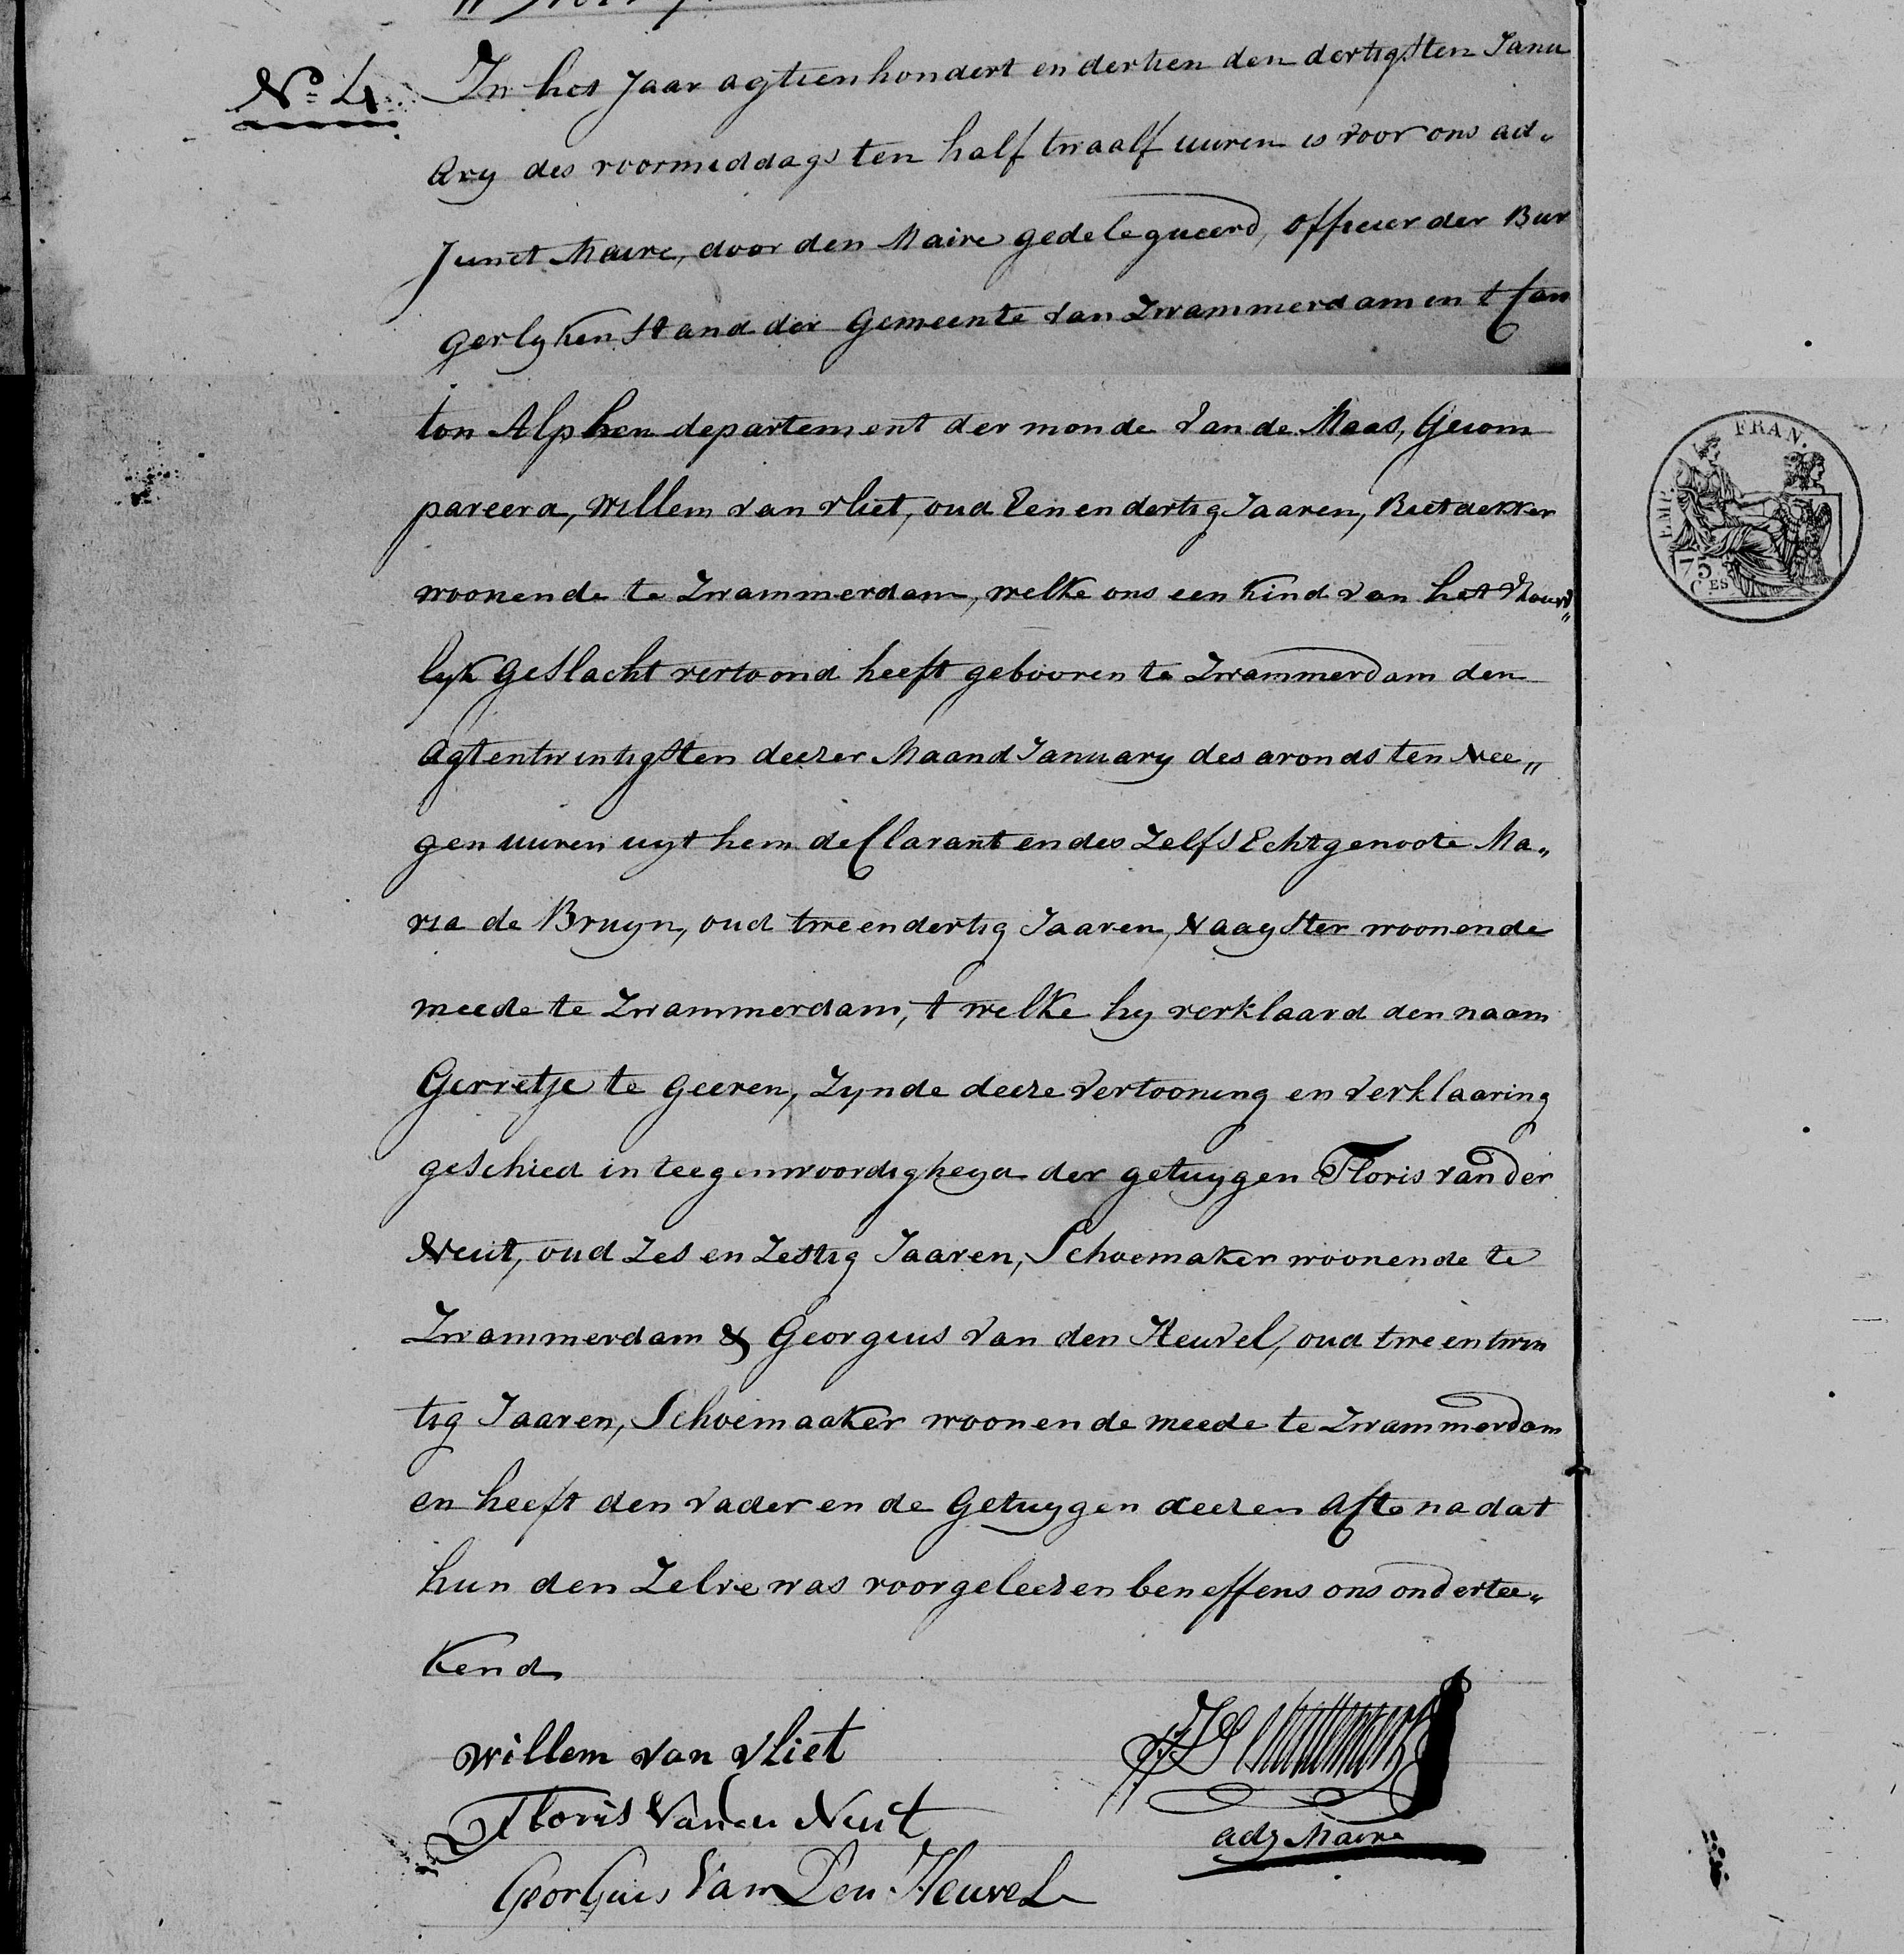 No. 4
In het Jaar agtienhondert en dertien den dertigsten Janu
ary des voormeddags ten half twaalf uuren is voor ons ad„
junct Maire, door den Maire gedelegueerd, officier der Bur
gerlyken Stand der Gemeente van Zwammerdam in t Can
ton Alphen departement der monde van de Maas, Gecom
pareerd, Willem van Vliet, oud Een en dertig Jaaren, Rietdekker
woonende te Zwammerdam, welke ons een Kind van het Vrouw„
lyk Geslacht vertoond heeft gebooren te Zwammerdam den
agtentwintigsten deezer Maand January des avonds ten Nee„
gen uuren uyt hem declarant en des Zelfs Echtgenoote Ma„
ria de Bruyn, oud twee en dertig Jaaren, Naayster woonende
meede te Zwammerdam, t welke hy verklaard den naam
Gerretje te geeven, Zynde deeze vertooning en verklaaring
geschied in teegenwoordigheyd der getuygen Floris van der
Neut, oud Zes en Zestig Jaaren, Schoemaker woonende te
Zwammerdam & Georgius van den Heuvel, oud twee en twin
tig Jaaren, Schoemaaker woonende meede te Zwammerdam
en heeft den vader en de Getuygen deezen Acte na dat
hun den Zelve was voorgeleezen beneffens ons ondertee„
kend
Willem van Vliet
Floris Vander Neut
adj Maire
Georgius Van Den Heuvel
EMP. FRAN.
75 CES